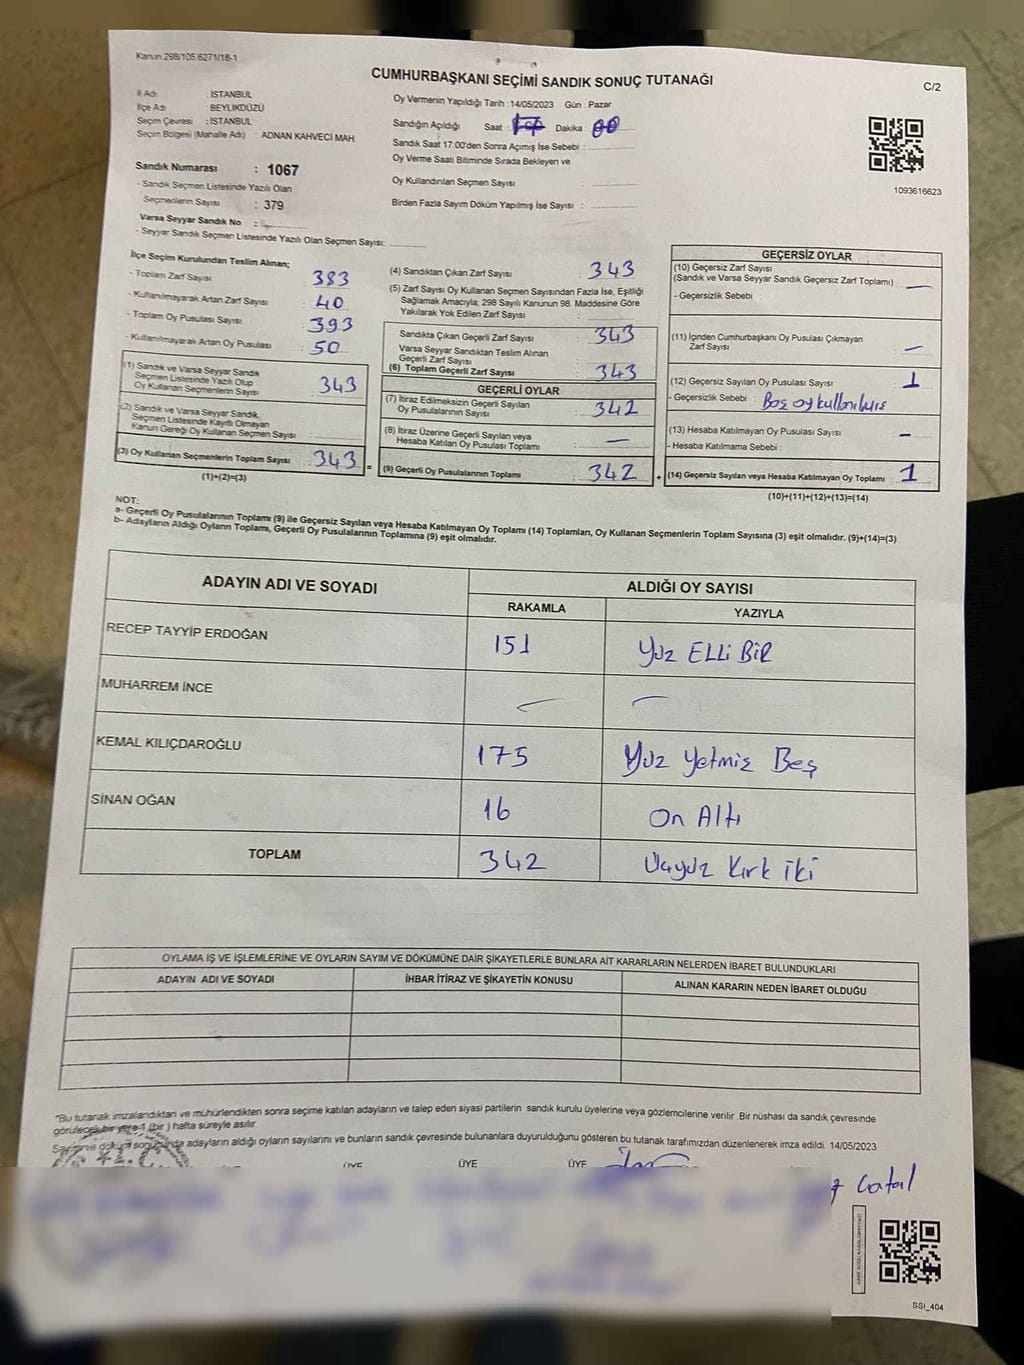 Kanun 298/105 6271/18-1
CUMHURBAŞKANI SEÇİMİ SANDIK SONUÇ TUTANAĞI
C/2
İl Adı : İSTANBUL
İlçe Adı : BEYLİKDÜZÜ
Seçim Çevresi : İSTANBUL
Seçim Bölgesi (Mahalle Adı) : ADNAN KAHVECİ MAH
Oy Vermenin Yapıldığı Tarih : 14/05/2023 Gün : Pazar
Sandığın Açıldığı Saat : Dakika : 00
Sandık Saat 17.00'den Sonra Açımış İse Sebebi :
Oy Verme Saati Bitiminde Sırada Bekleyen ve
Oy Kullandırılan Seçmen Sayısı :
Birden Fazla Sayım Döküm Yapılmış İse Sayısı :
1093616623
Sandık Numarası : 1067
- Sandık Seçmen Listesinde Yazılı Olan
Seçmenlerin Sayısı : 379
Varsa Seyyar Sandık No :
- Seyyar Sandık Seçmen Listesinde Yazılı Olan Seçmen Sayısı:
İlçe Seçim Kurulundan Teslim Alınan;
- Toplam Zarf Sayısı : 383
- Kullanılmayarak Artan Zarf Sayısı : 40
- Toplam Oy Pusulası Sayısı : 393
- Kullanılmayarak Artan Oy Pusulası : 50
(1) Sandık ve Varsa Seyyar Sandık
Seçmen Listesinde Yazılı Olup
Oy Kullanan Seçmenlerin Sayısı : 343
(2) Sandık ve Varsa Seyyar Sandık
Seçmen Listesinde Kayıtlı Olmayan
Kanun Gereği Oy Kullanan Seçmen Sayısı :
(3) Oy Kullanan Seçmenlerin Toplam Sayısı : 343 =
(1)+(2)=(3)
(4) Sandıktan Çıkan Zarf Sayısı : 343
(5) Zarf Sayısı Oy Kullanan Seçmen Sayısından Fazla İse, Eşitliği
Sağlamak Amacıyla; 298 Sayılı Kanunun 98. Maddesine Göre
Yakılarak Yok Edilen Zarf Sayısı :
Sandıkta Çıkan Geçerli Zarf Sayısı : 343
Varsa Seyyar Sandıktan Teslim Alınan
Geçerli Zarf Sayısı :
(6) Toplam Geçerli Zarf Sayısı : 343
GEÇERLİ OYLAR
(7) İtiraz Edilmeksizin Geçerli Sayılan
Oy Pusulalarının Sayısı : 342
(8) İtiraz Üzerine Geçerli Sayılan veya
Hesaba Katılan Oy Pusulası Toplamı : —
(9) Geçerli Oy Pusulalarının Toplamı : 342 +
GEÇERSİZ OYLAR
(10) Geçersiz Zarf Sayısı
(Sandık ve Varsa Seyyar Sandık Geçersiz Zarf Toplamı) : —
- Geçersizlik Sebebi :
(11) İçinden Cumhurbaşkanı Oy Pusulası Çıkmayan
Zarf Sayısı : —
(12) Geçersiz Sayılan Oy Pusulası Sayısı : 1
- Geçersizlik Sebebi : Boş oy
(13) Hesaba Katılmayan Oy Pusulası Sayısı : —
- Hesaba Katılmama Sebebi :
(14) Geçersiz Sayılan veya Hesaba Katılmayan Oy Toplamı : 1
(10)+(11)+(12)+(13)=(14)
NOT:
a- Geçerli Oy Pusulalarının Toplamı (9) ile Geçersiz Sayılan veya Hesaba Katılmayan Oy Toplamı (14) Toplamları, Oy Kullanan Seçmenlerin Toplam Sayısına (3) eşit olmalıdır. (9)+(14)=(3)
b- Adayların Aldığı Oyların Toplamı, Geçerli Oy Pusulalarının Toplamına (9) eşit olmalıdır.
ADAYIN ADI VE SOYADI
ALDIĞI OY SAYISI
RAKAMLA YAZIYLA
RECEP TAYYİP ERDOĞAN 151 Yüz ELLİ BİR
MUHARREM İNCE — —
KEMAL KILIÇDAROĞLU 175 Yüz Yetmiş Beş
SİNAN OĞAN 16 On Altı
TOPLAM 342 Üçyüz Kırk iki
OYLAMA İŞ VE İŞLEMLERİNE VE OYLARIN SAYIM VE DÖKÜMÜNE DAİR ŞİKAYETLERLE BUNLARA AİT KARARLARIN NELERDEN İBARET BULUNDUKLARI
ADAYIN ADI VE SOYADI İHBAR İTİRAZ VE ŞİKAYETİN KONUSU ALINAN KARARIN NEDEN İBARET OLDUĞU
*Bu tutanak imzalandıktan ve mühürlendikten sonra seçime katılan adayların ve talep eden siyasi partilerin sandık kurulu üyelerine veya gözlemcilerine verilir. Bir nüshası da sandık çevresinde
görülecek bir yere 1 (bir) hafta süreyle asılır.
Sayım ve döküm sonucunda adayların aldığı oyların sayılarını ve bunların sandık çevresinde bulunanlara duyurulduğunu gösteren bu tutanak tarafımızdan düzenlenerek imza edildi. 14/05/2023
ÜYE ÜYE ÜYE
Çatal
SSI_404